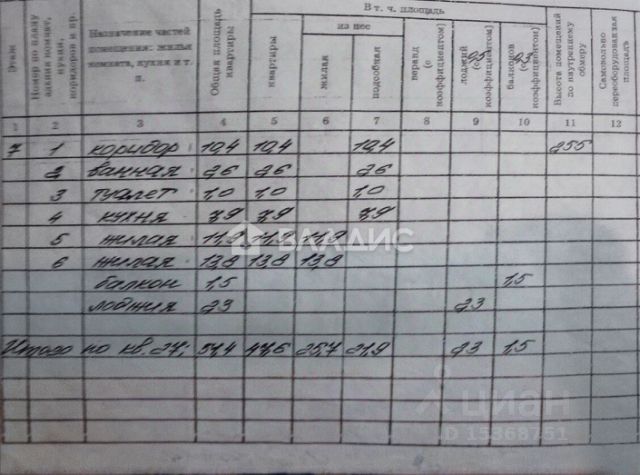 В т. ч. площадь
из нее
Этаж
Номер по плану здания комнат, кухни, коридоров и пр.
Назначение частей помещения: жилая комната, кухня и т. п.
Общая площадь квартиры
квартиры
жилая
подсобная
веранд (с коэффициентом)
лоджий (с коэффициентом)
балконов (с коэффициентом)
Высота помещений по внутреннему обмеру
Самовольно переоборудованная площадь
1 2 3 4 5 6 7 8 9 10 11 12
7 1 коридор 10,4 10,4 10,4 255
2 ванная 2,6 2,6 2,6
3 туалет 1,0 1,0 1,0
4 кухня 7,9 7,9 7,9
5 жилая 11,9 11,9 11,9
6 жилая 13,8 13,8 13,8
балкон 1,5 1,5
лоджия 2,3 2,3
Итого по кв. 27: 51,4 47,6 25,7 21,9 2,3 1,5
ВЛАДИС
циан
ID 15368751